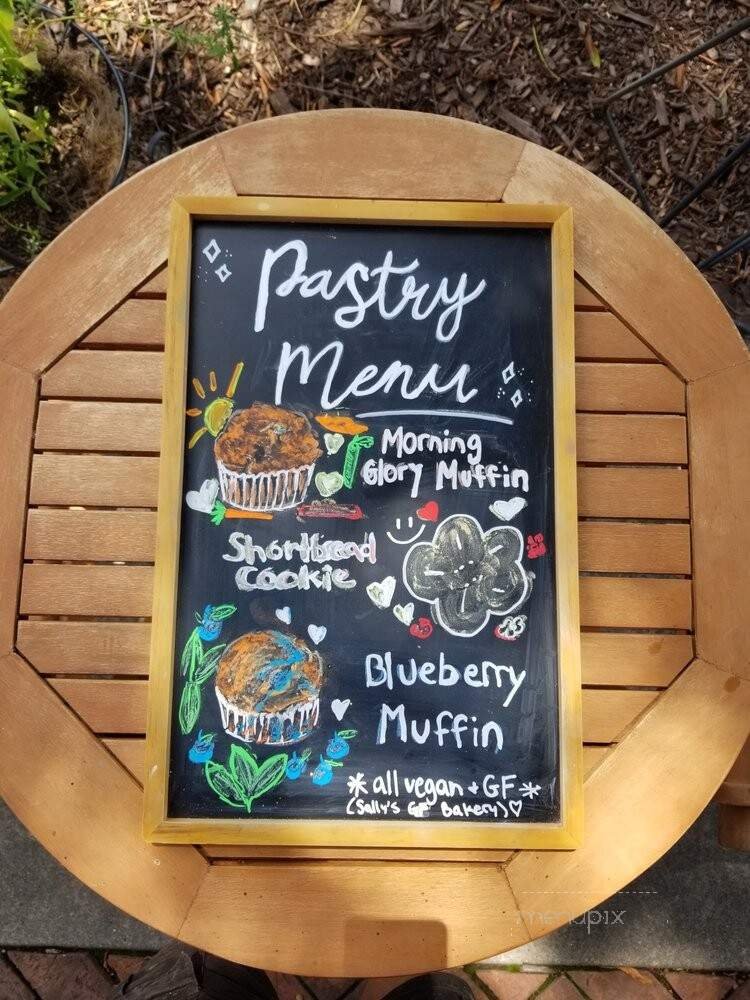 Pastry
Menu
Morning
Glory Muffin
Shortbread
Cookie
Blueberry
Muffin
*all vegan + GF*
(Sally's GF Bakery)♡
menupix